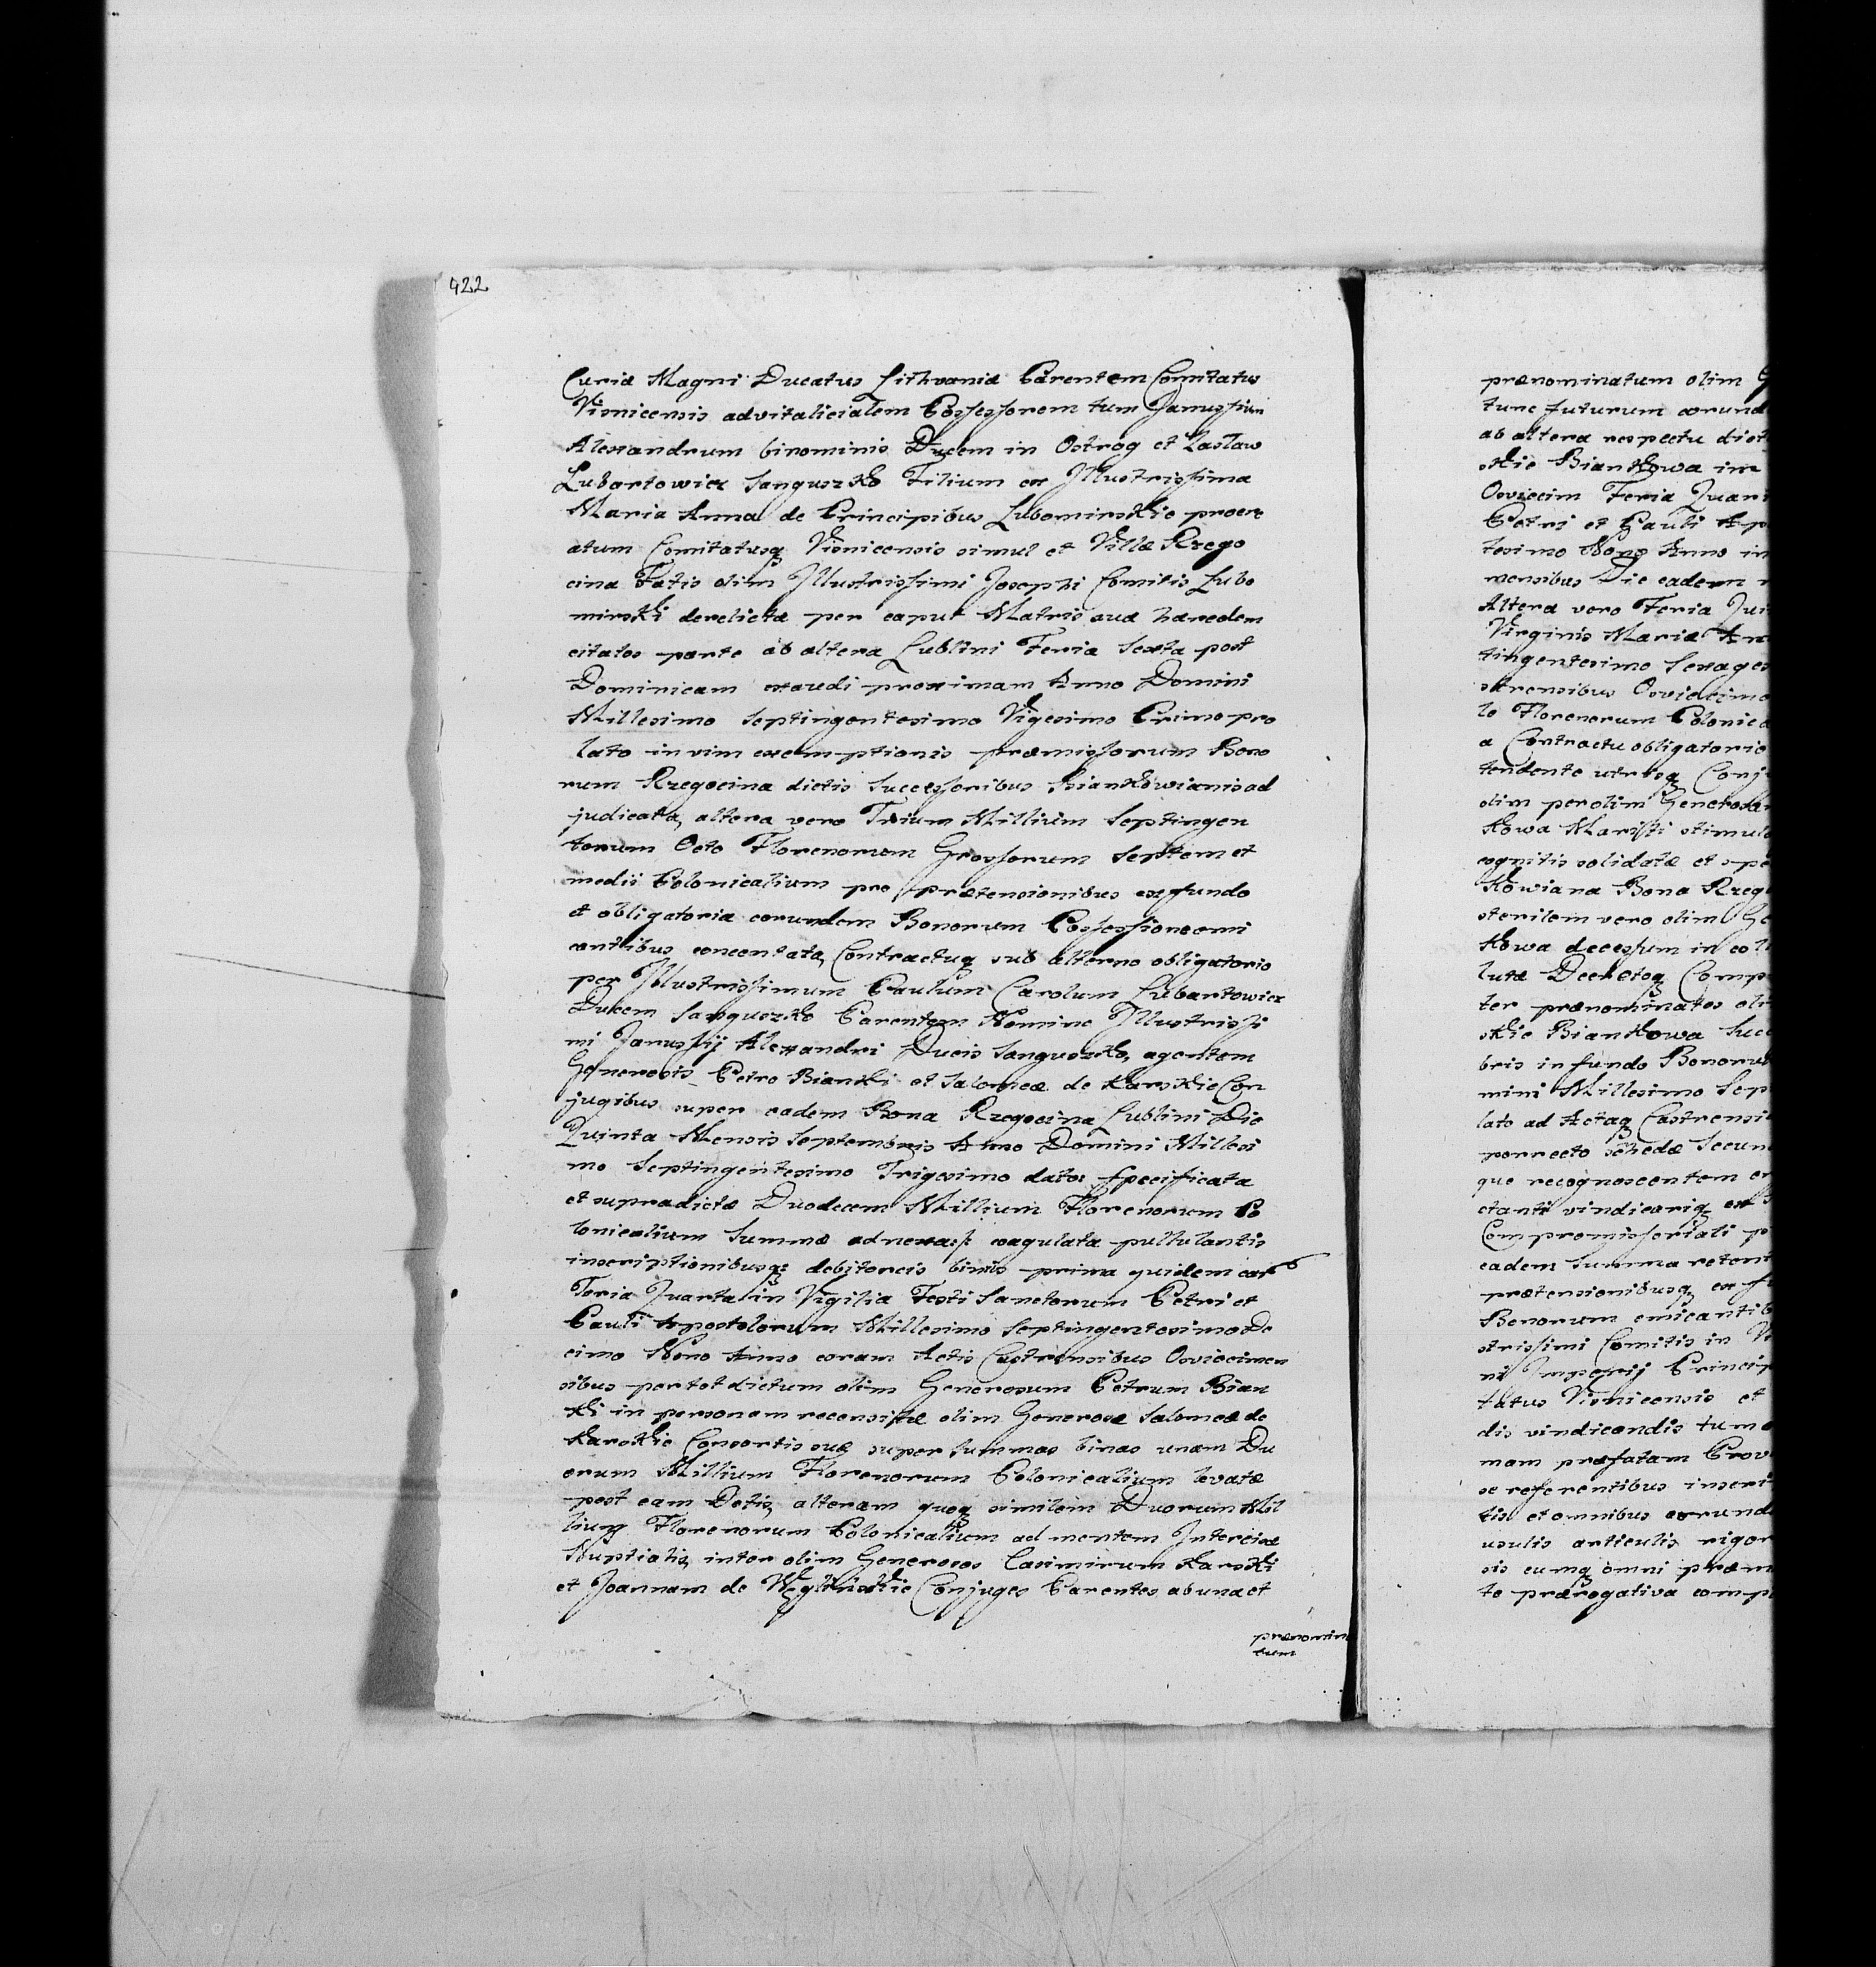 422
Curiæ Magni Ducatus Lithvaniæ Parentem Comitatus
Visnicensis advitalicialem Possessorem tum Janussium
Alexandrum binominis Ducem in Ostrog et Zaslaw
Lubartowicz Sanguszko Filium ex Illustrissima
Maria Anna de Principibus Lubomirskie procre
atum Comitatusq Visnicensis simul et Villæ Rzego
cina Fatis olim Illustrissimi Josephi Comitis Lubo
mirski derelictæ per caput Matris suæ hæredem
citatos parte ab altera Lublini Feria Sexta post
Dominicam exaudi proximam Anno Domini
Millesimo Septingentesimo Vigesimo Primo pro
lato in vim exemptionis præmissorum Bono
rum Rzegocina dictis Successoribus Biankowianis ad
judicata, altera vero Trium Millium Septingen
torum Octo Florenorum Grossorum Septem et
medii Polonicalium pro prætensionibus ex fundo
et obligatoria eorundem Bonorum Possessione emi
cantibus concentata, Contractuq sub alterno obligatorio
per Illustrissimum Paulum Carolum Lubartowicz
Ducem Sanguszko Parentem Nomine Illustrissi
mi Janussij Alexandri Ducis Sanguszko, agentem
Generosis Petro Bianki et Salomeæ de Karskie Con
jugibus super eadem Bona Rzegocina Lublini Die
Quinta Mensis Septembris Anno Domini Millesi
mo Septingentesimo Trigesimo dato specificata
et supradictæ Duodecem Millium Florenorum Po
lonicalium Summæ adnexa coagulata pullulantis
inscriptionibusq debitoreis binis prima quidem
Feria Quarta in Vigilia Festi Sanctorum Petri et
Pauli Apostolorum Millesimo Septingentesimo De
cimo Nono Anno coram Actis Castrensibus Osviecimen
sibus per tot dictum olim Generosum Petrum Bian
ki in personam recensitæ olim Generosæ Salomeæ de
Karskie Consortis suæ super Summas binas unam Du
orum Millium Florenorum Polonicalium levatæ
post eam Dotis, alteram quoq similem Duorum Mil
lium Florenorum Polonicalium ad mentem Intercisæ
Nuptialis, inter olim Generosos Casimirum Karski
et Joannam de Węglińskie Conjuges Parentes ab una et
prænomina
tum
prænominatum olim
tunc futurum eorund
ab altera respectu dict
skie Biankowa in
Osviecim Feria Quar
Petri et Pauli Ap
tesimo Nono Anno in
mensibus Die eadem
Altera vero Feria Qui
Virginis Mariæ An
tingentesimo Sexages
strensibus Osviecimo
le Florenorum Polonica
a Contractu obligatorio
tendente utrisq Conj
olim per olim Generosa
kowa Mariti stimul
cognitis solidatæ et spe
kowiana Bona Rzeg
sterilem vero olim Ge
kowa decessum in
lutæ Decretoq Comp
ter prænominatos oli
skie Biankowa Succ
bris in fundo Bonoru
mini Millesimo Sep
lato ad Actaq Castrensi
porrecto schedæ Secun
quo recognoscentem
ctanti vindicariq ex
Compromissoriali p
eadem Summa retent
prætensionibusq ex f
Bonorum emicantib
strissimi Comitis in Vi
ni Imperij Princip
tatus Visnicensis et
dis vindicandis tum
mam præfatam Prov
se referentibus inscri
tis et omnibus eorund
usulis articulis rigor
sis eumq omni præm
to prærogativa comp